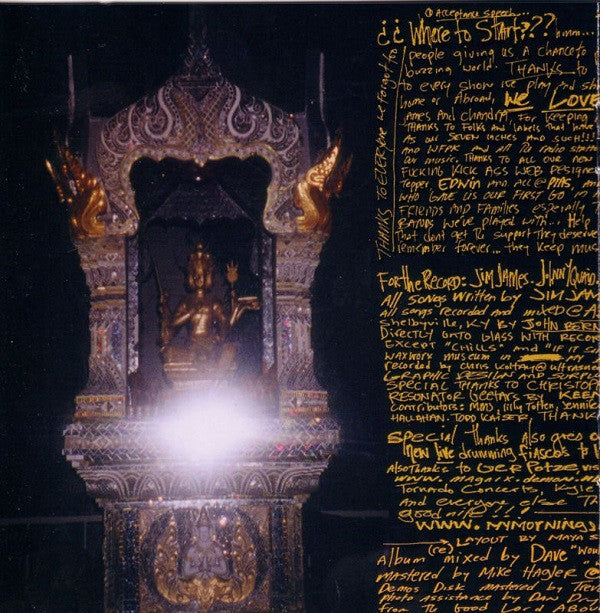 ① Acceptance speech...
¿¿ Where to Start??? hmm...
people giving us A chance to
buzzing world. THANKS to
to every show we play and sh
home or Abroad, We Love
Ames and Chandra, for keeping
THANKS TO Folks and labels That
As our SEVEN inches and such!!!
AND WFPK and all
our music. THANKS TO ALL OUR NEW
FUCKING KICK ASS WEB DESIGNE
Tepper, EDWIN and all @ PMS, AND
WHO GAVE US OUR FIRST GO IN
FRIENDS AND FAMILIES especially
we've played with... Help
That don't get The support They deserve
remember forever... they keep mus
THANKS TO EVERYONE we forgot to
For the Record: Jim James. Johnny Quaid.
All songs written by JIM JAM
All songs recorded and mixed @ A
Shelbyville, KY By JOHN
Directly onto Glass with RECOR
EXCEPT "CHILLS" and "IF IT S
waxworx museum in
recorded by Chris
GRAPHIC DESIGN AND
SPECIAL THANKS to CHRISTOP
RESONATOR Geetars BY KEEN
Contributors: MMJ, lilly Totten, Jennife
HALLAHAN. TODD KAISER, THANK
special Thanks Also goes
New live drumming fiascos to
Also thanks to GER POTZE
www. magnix. demon.
Tornado Concerts, Kyle
and everyone else Th
good nite!!
www.mymornings
(re) LAYOUT BY MAYA S
Album mixed by Dave "Wou
mastered by Mike Hagler @
Demos Disk mastered by Trev
photo assistance by
from The Good Love